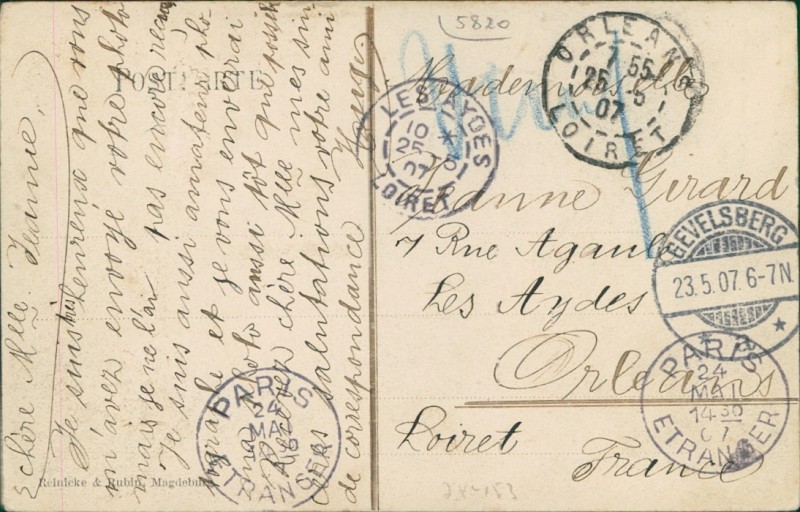 5820
POSTKARTE
Chère Mlle Jeanne,
Je suis très heureux que vous
m'avez envoyé votre photo
mais je ne l'ai pas encore reçu
Je suis aussi amateur pho-
tographe et je vous enverrai
ma photo aussi tôt que possible
Recevez chère Mlle mes sin-
cères salutations votre ami
de correspondance
Mademoiselle
Jeanne Girard
7 Rue
Les Aydes
Orléans
Loiret France
ORLEANS
7 55
25 5
07
LOIRET
LES AYDES
10
25 5
07
LOIRET
GEVELSBERG
23.5.07. 6-7N.
PARIS
24
MAI
14 30
07
ETRANGER
PARIS
24
MAI
ETRANGER
Reinicke & Rubin, Magdeburg